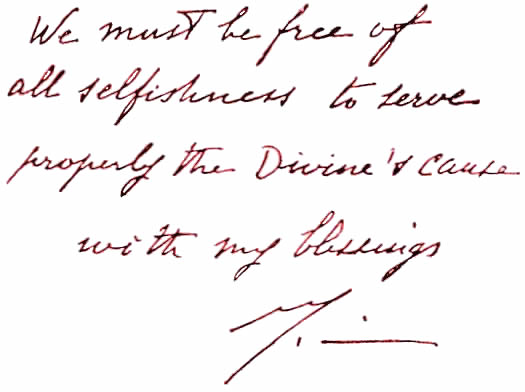 We must be free of
all selfishness to serve
properly the Divine's cause
with my blessings